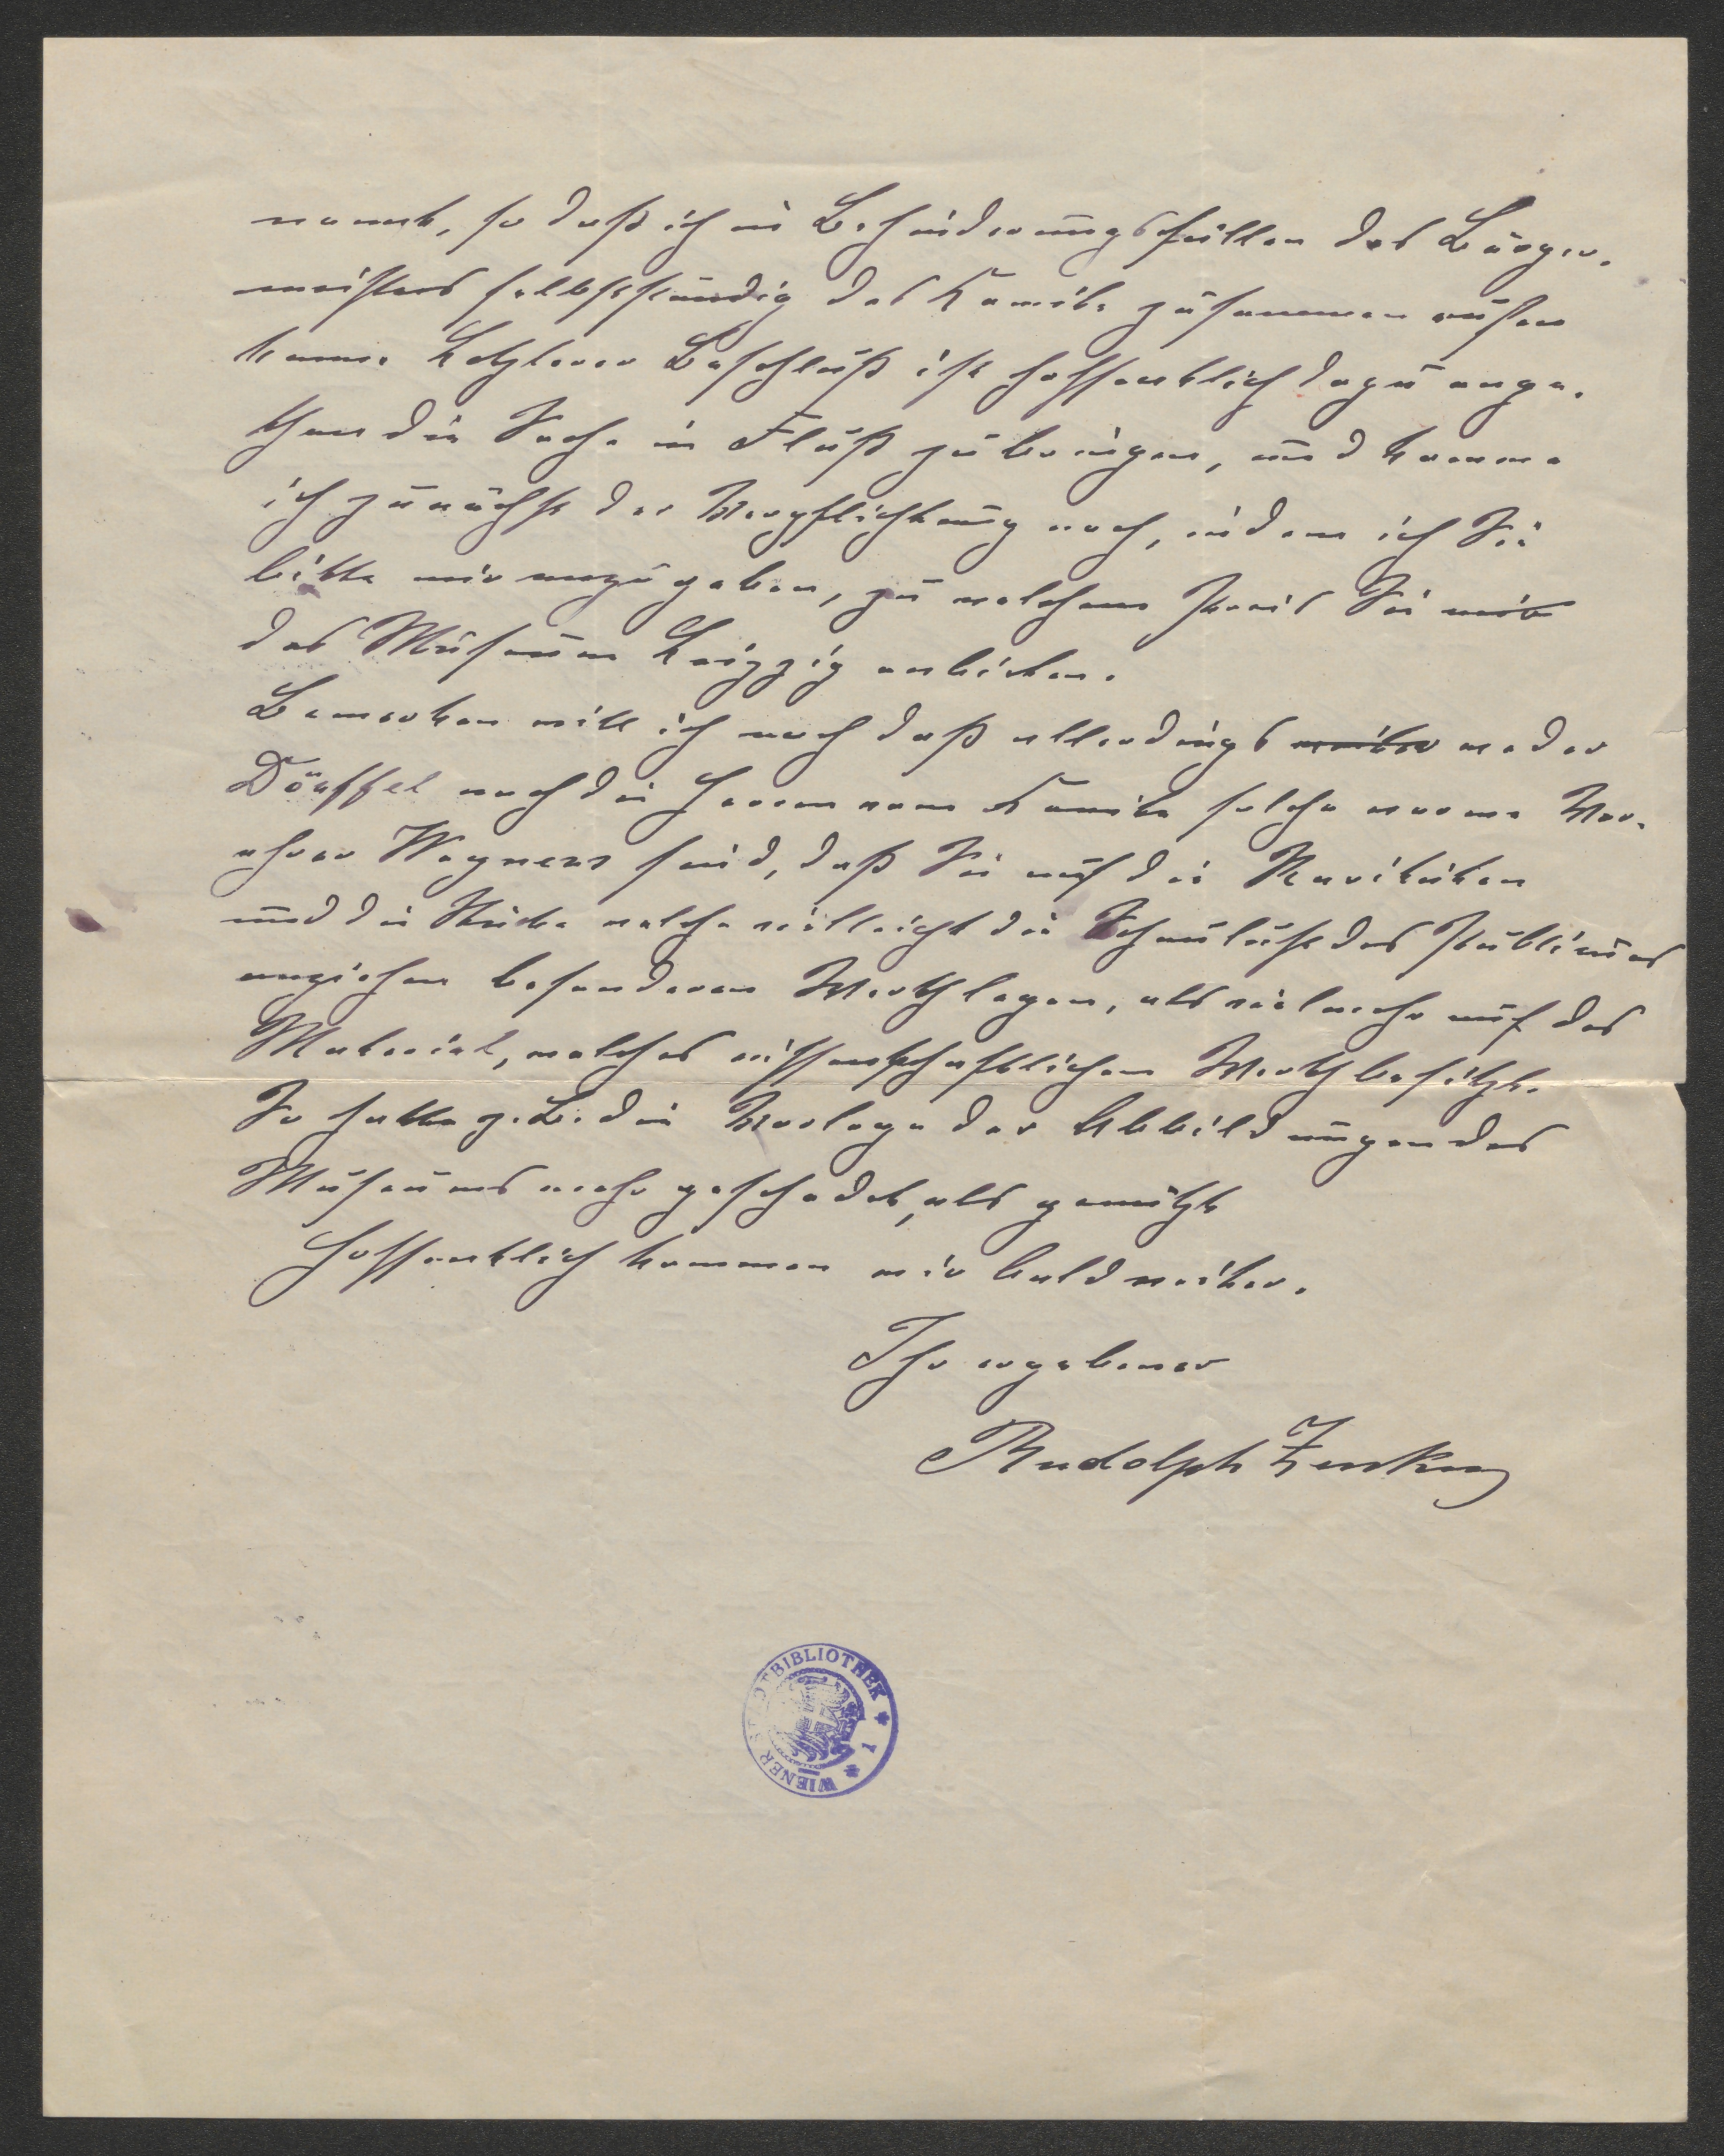 nannt, so daß ich in Behinderungsfällen des Bürger-
meisters selbstständig das Komite zusammen rufen
kann. Letzterer Beschluß ist hoffentlich dazu ange-
than die Sache in Fluß zu bringen, und komme
ich zunächst der Verpflichtung nach, indem ich Sie
bitte mir anzugeben, zu welchem Preis Sie mir
das Museum Leipzig anbieten.
Bemerken will ich noch daß allerdings weder
Dörffel noch die Herren vom Komite solche warme Ver-
ehrer Wagners sind, daß Sie auf die Raritäten
und die Stücke welche vielleicht die Schaulust des Publicums
anziehen besonderen Werth legen, als vielmehr auf das
Material, welches wissenschaftlichen Werth besitzt.
So hatte z.B. die Vorlage der Abbildungen des
Museums mehr geschadet, als genützt
Hoffentlich kommen wir bald weiter.
Ihr ergebener
Rudolph Zenker
WIENER STADTBIBLIOTHEK * 1 *